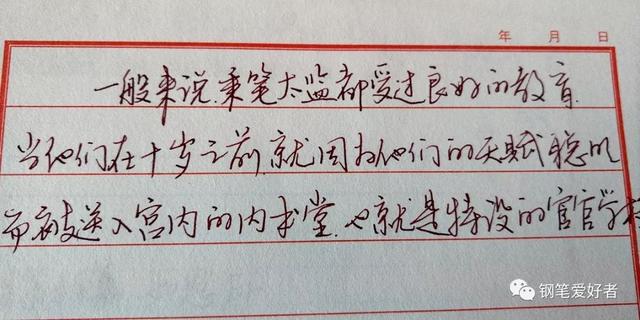 年 月 日
一般来说,秉笔太监都受过良好的教育.
当他们在十岁之前,就因为他们的天赋聪明
而被送入宫内的内书堂,也就是特设的宦官学校
钢笔爱好者